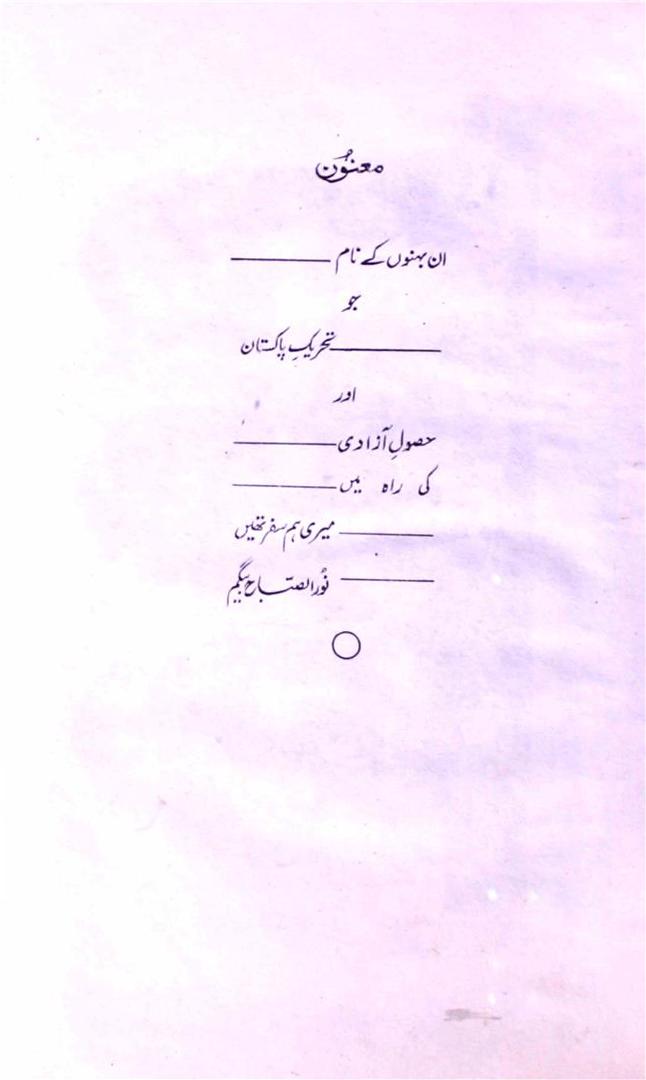 معنوُن
ان بہنوں کے نام ________
جو
________ تحریکِ پاکستان
اور
حصولِ آزادی ________
کی راہ میں ________
________ میری ہم سفر تھیں
________ نُور الصّباح بیگم